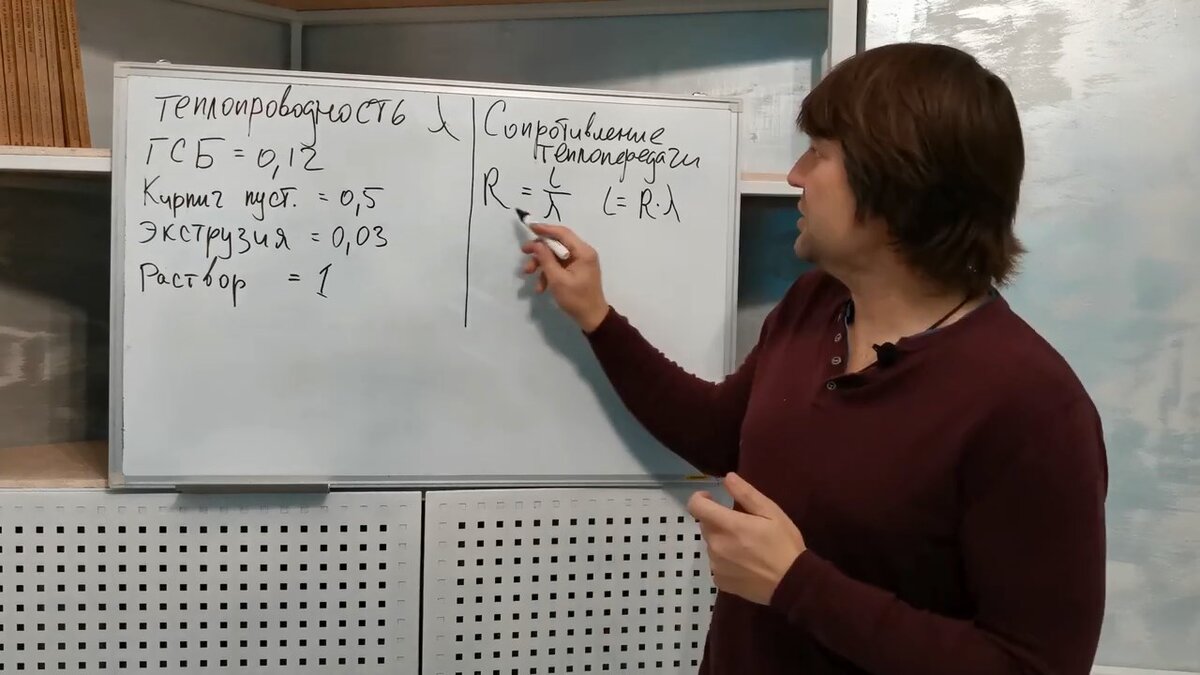 Теплопроводность λ
ГСБ = 0,12
Кирпич пуст. = 0,5
Экструзия = 0,03
Раствор = 1
Сопротивление
теплопередачи
R = l/λ l = R·λ